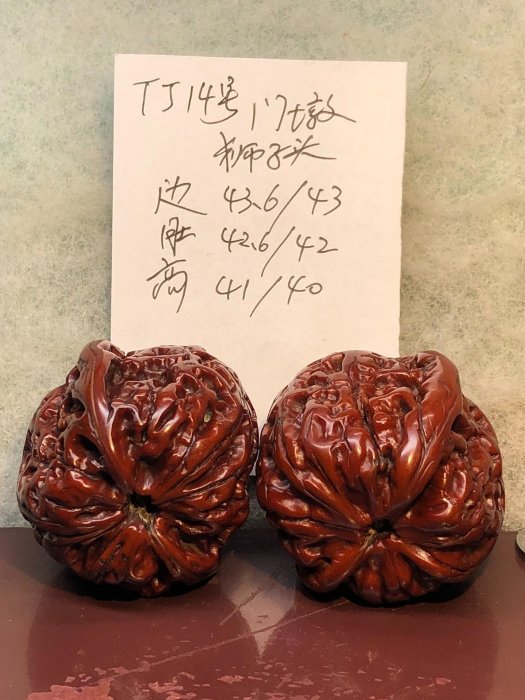 TJ14号门墩
狮子头
边 43.6/43
肚 42.6/42
高 41/40